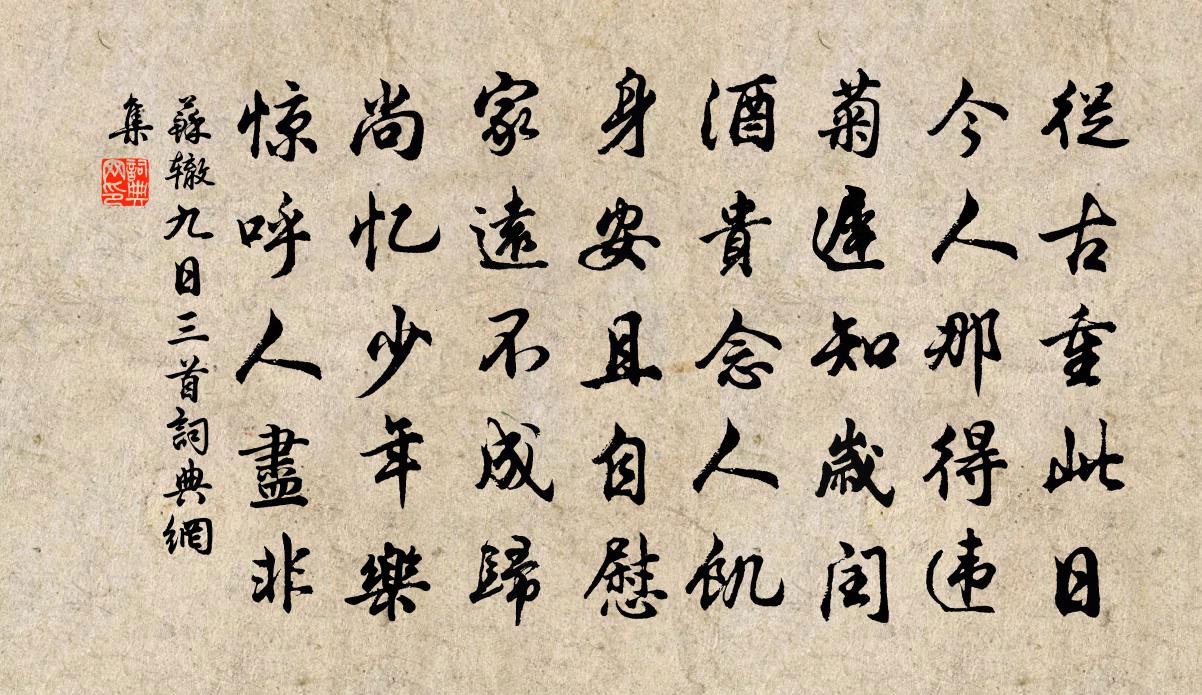 從古重此日
今人那得违
菊遲知歲闰
酒貴念人飢
身安且自慰
家遠不成歸
尚忆少年樂
惊呼人盡非
蘇辙九日三首詞典網
集
詞典网印